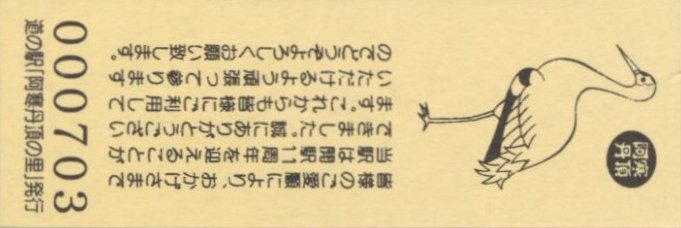 阿寒
丹頂
皆様のご愛顧により、おかげさまで
当駅は開駅11周年を迎えることが
できました。誠にありがとうござい
ます。これからも皆様にご利用して
いただけるよう頑張って参ります
のでどうぞよろしくお願い致します。
000703
道の駅「阿寒丹頂の里」発行